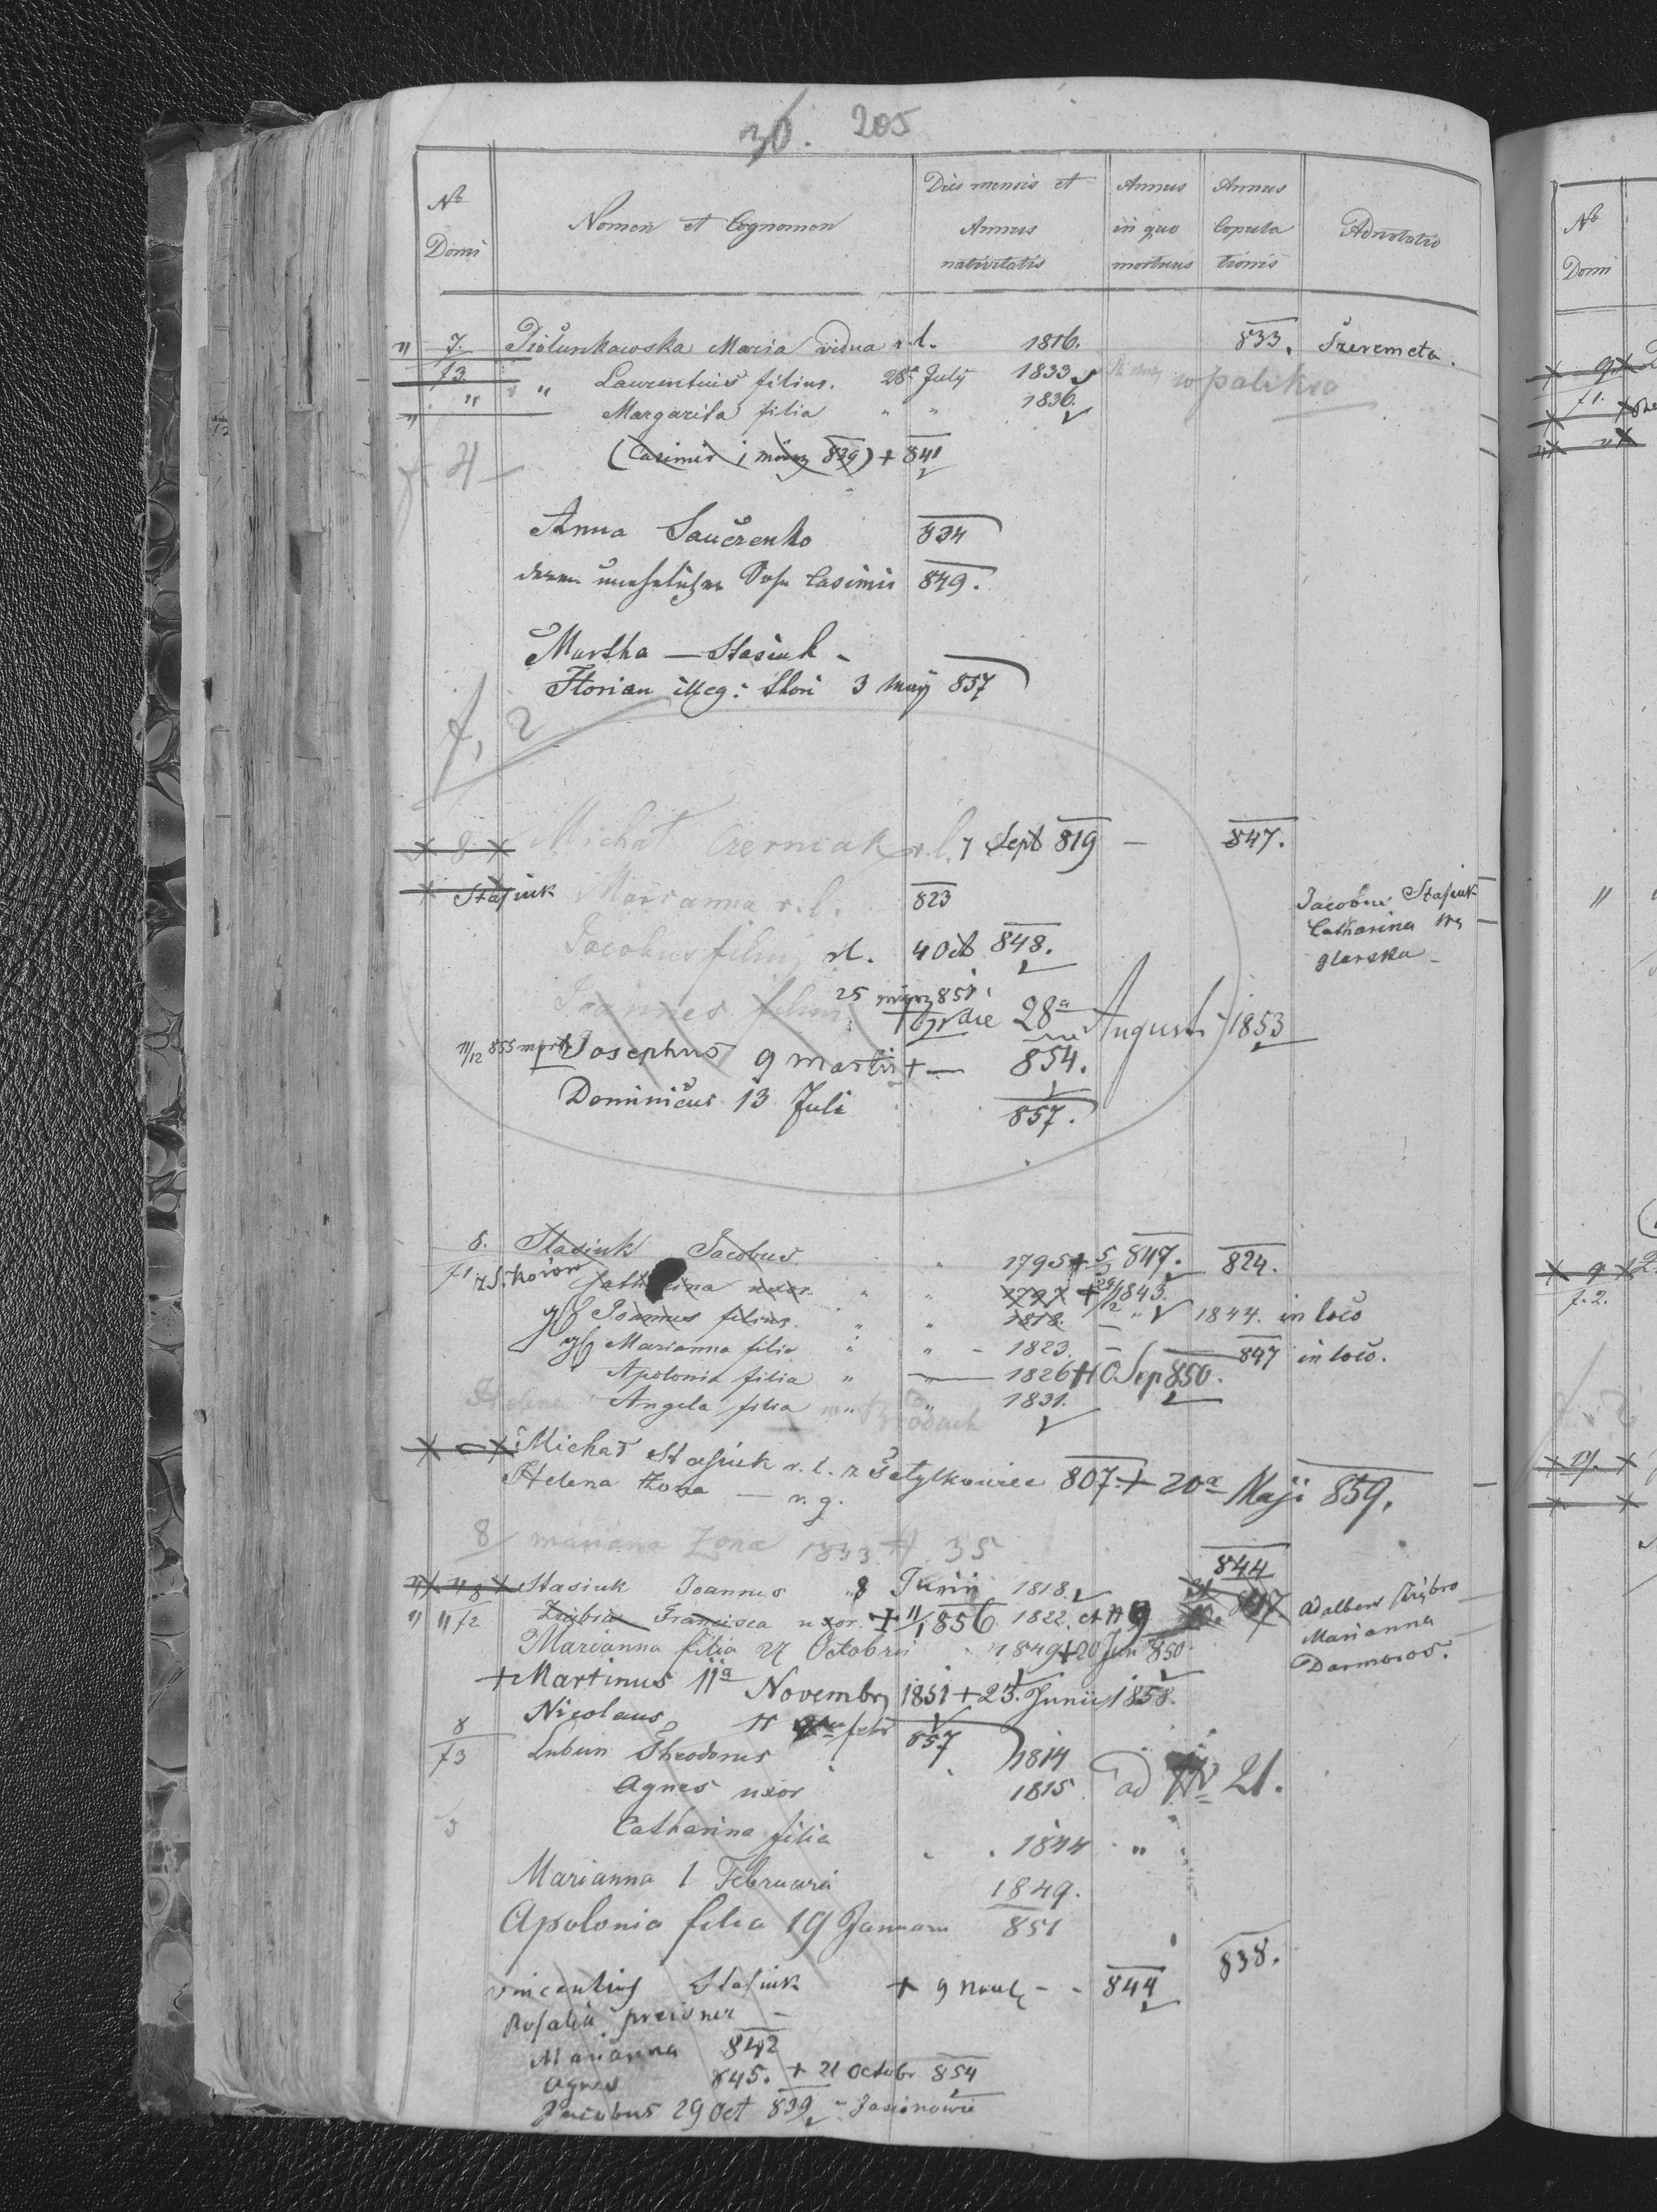 30. 205
No Domi
Nomen et Cognomen
Dies mensis et Annus nativitatis
Annus in quo mortuus
Annus Copulationis
Adnotatio
" 7. Piółunkowska Maria vidua r. l. 1816. 833. Szeremeta.
f3. " " Laurentius filius. 28a July 1833
" " Margarita filia " " 1836.
(Casimir 1 März 839) + 841
Anna Sauczenko 834
deren unehelicher Sohn Casimir 849.
Martha — Stasiuk -
Florian illeg: thori 3 May 857
f, 2
x 8 x Michał Czerniak r. l. 7 Sept 819 — 847.
Stasiuk Marianna r. l. 823
Jacobus Stasiuk
Catharina Wę
glarska -
Jacobus filius rl. 4 Oct 848.
Joannes filius 25 März 851
+ die 28a Augusti 1853
11/12 855 mort Josephus 9 martii + — 854.
Dominicus 13 Juli 857.
8. Stasiuk Jacobus 1795 + 5 847. 824.
f1 Catharina uxor. " " 1797 + 29/12 1843.
Joannes filius. " " 1818. — " 1844. in loco
Marianna filia " " - 1823. — 847 in loco.
Apolonia filia " " 1826 Sep 850.
Helena Angela filia " " 1831.
Brodach
x x Michał Stasiuk r. l. z Satylkowiec 807. + 20a Maji 859.
Helena żona — r. g.
8 mariana Zona 1833 35
844
" 8 x Stasiuk Joannes 8 Junii 1818. 847
" " f2 Francisca uxor. + 11/1 856 1822.
Adalbert Skibro
Marianna
Darmoros.
Marianna filia 27 Octobris 1849 + 20 Jun 850
+ Martinus 11a Novembr 1851 + 23. Junii 1858.
Nicolaus 11 febr 857
8 f3 Lubun Theodorus " " 1814
Agnes uxor 1815. ad N 21.
Catharina filia " " 1844 "
Marianna 1 Februari 1849.
Apolonia filia 19 Januari 851
838.
Vincentius Stasiuk + 9 - - 844
Rosalia preisner —
Marianna 842
Agnes 845. + 21 Octobr 854
Jacobus 29 Oct 839 - Jasionowie